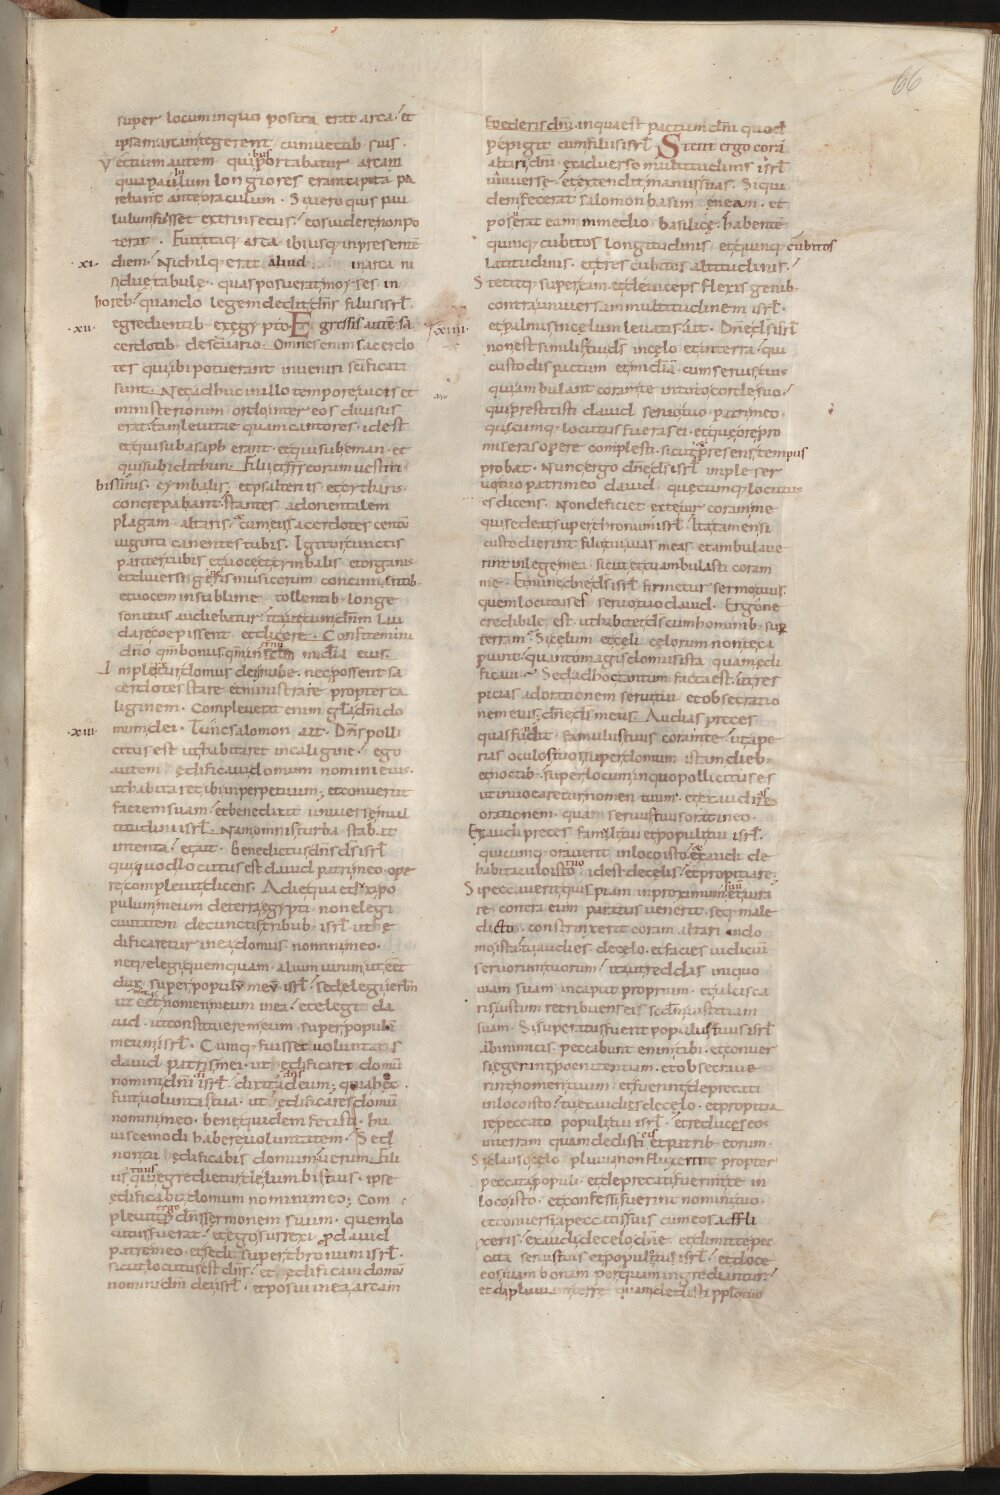 66
super locum inquo posita erat arca. et
ipsam arcam tegerent cumuectib suis.
Vectium autem quib portabatur arcam
quia paululum longiores erant capita pa
rebant ante oraculum. Si uero quis pau
lulum fuisset extrinsecus. eos uidere non po
terat. Fuit itaq; arca ibi usq; inpresentē
·xi· diem. Nichilq; erat aliud inarca ni
si due tabule. quas posuerat moyses in
horeb. quando legem dedit dn̄s filiis isrł.
·xii· egredientib; exegypto. Egressis autē sa
cerdotib; desctuario. Omnes enim sacerdo
tes quiibi potuerant inueniri scificati
sunt. Nec adhuc inillo tempore uices et
ministeriorum ordo inter eos diuisus
erat. tam leuitae quam cantores. id est
et quisub asaph erant. et quisub eman. et
quisub idithun. Filii et frs eorum uestiti
bissinis. cymbalis. et psalteriis et cytharis
concrepabant. stantes ad orientalem
plagam altaris. cum eis sacerdotes centū
uiginti canentes tubis. Igitur cunctis
pariter tubis et uoce et cymbalis et organis
et diuersi generis musicorum concinnentib;
et uocem insublime tollentib; longe
sonitus audiebatur. ita ut cum dn̄m lau
dare coepissent et dicere. Confitemini
dn̄o qm̄ bonus. qm̄ in aeternum mīdia eius.
Impleretur domus dei nube. nec possent sa
cerdotes stare et ministrare propter ca
liginem. Compleuerat enim gła dn̄i do
·xiii· mum dei. Tunc salomon ait. Dn̄s polli
citus est ut habitaret incaligine. ego
autem edificaui domum nomini eius.
ut habitaret ibi inperpetuum. et conuertit
faciem suam. et benedixit uniuerse mul
titudini isrł. Nam omnis turba stabat
intenta. et ait. benedictus dn̄s ds̄ isrł
qui quod locutus est dauid patri meo ope
re compleuit dicens. A die qua eduxi po
pulum meum deterra egypti. non elegi
ciuitatem decunctis tribub; isrł. ut e
dificaretur inea domus nomini meo.
neq; elegi quemquam alium uirum ut eēt
dux super populū meū isrł. sed elegi ierłm
ut eēt nomen meum inea. et elegi da
uid. ut constituerem eum super populū
meum isrł. Cumq; fuisset uoluntatis
dauid patris mei. ut edificaret domū
nomini dn̄i dī isrł. dixit dn̄s ad eum. quia hec
fuit uoluntas tua. ut edificares domū
nomini meo. bene quidem fecisti. hu
iuscemodi habere uoluntatem. Sed
non tu edificabis domum. uerum fili
us tuus qui egredietur delumbis tuis. ipse
edificabit domum nomini meo. Com
pleuit ergo dn̄s sermonem suum. quem lo
cutus fuerat. et ego surrexi p dauid
patre meo. et sedi super thronum isrł.
sicut locutus est dn̄s. et edificaui domū
nomini dn̄i dei isrł. et posui inea arcam
foederis dn̄i. inqua est pactum dn̄i quod
pepigit cum filiis isrł. Stetit ergo corā
altari dn̄i. et aduerso multitudinis isrł
uniuerse. et extendit manus suas. Siqui
dem fecerat salomon basim eneam. et
posuerat eam inmedio basilice. habentē
quinq; cubitos longitudinis. et quinq; cubitos
latitudinis. et tres cubitos altitudinis.
Stetitq; super eam. et deinceps flexis genib;
contra uniuersam multitudinem isrł.
·xiiii· et palmis incelum leuatis ait. Dn̄e ds̄ isrł
non est similis tui ds̄ incelo et interra. qui
custodis pactum et mīdiā cum seruis tuis
qui ambulant coram te intoto corde suo.
qui prestitisti dauid seruo tuo patri meo
quecumq; locutus fueras ei. et que ore pro
miseras opere complesti. sicut et presens tempus
probat. Nunc ergo dn̄e ds̄ isrł. imple ser
uo tuo patri meo dauid. quecumq; locutus
es dicens. Non deficiet exte uir coram me
qui sedeat super thronum isrł. Ita tamen si
custodierint filii tui uias meas. et ambulaue
rint inlege mea. sicut et tu ambulasti coram
me. Et nunc dn̄e ds̄ isrł firmetur sermo tuus.
quem locutus es seruo tuo dauid. Ergo ne
credibile est. ut habitet ds̄ cum hominib; sup
terram. Si celum et celi celorum non te ca
piunt. quanto magis domus ista quam edi
ficaui. Sed ad hoc tantum facta est. ut res
picias adorationem serui tui et obsecratio
nem eius. dn̄e ds̄ meus. Audias preces
quas fudit famulus tuus coram te. ut ape
rias oculos tuos super domum istam dieb;
et noctib; super locum inquo pollicitus es
ut inuocaretur nomen tuum. et exaudires
orationem. quam seruus tuus orat ineo.
Exaudi preces famuli tui et populi tui isrł.
quicumq; orauerit inloco isto. et exaudi de
habitaculo tuo. id est decelis. et propitiare.
Si peccauerit quis piam inproximum suū. et iura
re contra eum paratus uenerit. seq; male
dicto constrinxerit coram altari indo
mo ista. tu audies decelo. et facies iudiciū
seruorum tuorum. ita ut reddas iniquo
uiam suam incaput proprium. et ulcisca
ris iustum retribuens ei scdm̄ iustitiam
suam. Si superatus fuerit populus tuus isrł
ab inimicis. peccabunt enim tibi. et conuer
si egerint poenitentiam. et obsecraue
rint nomen tuum. et fuerint deprecati
inloco isto. tu exaudies decelo. et propitia
re peccato populi tui isrł. et reduces eos
interram quam dedisti eis et patrib; eorum.
Si clauso celo pluuia non fluxerint propter
peccata populi. et deprecati fuerint te in
loco isto. et confessi fuerint nomini tuo.
et conuersi a peccatis suis cum eos affli
xeris. exaudi decelo dn̄e. et dimitte pec
cata seruis tuis et populi tui isrł. et doce
eos uiam bonam per quam ingrediantur.
et da pluuiam terre quam dedisti pplō tuo